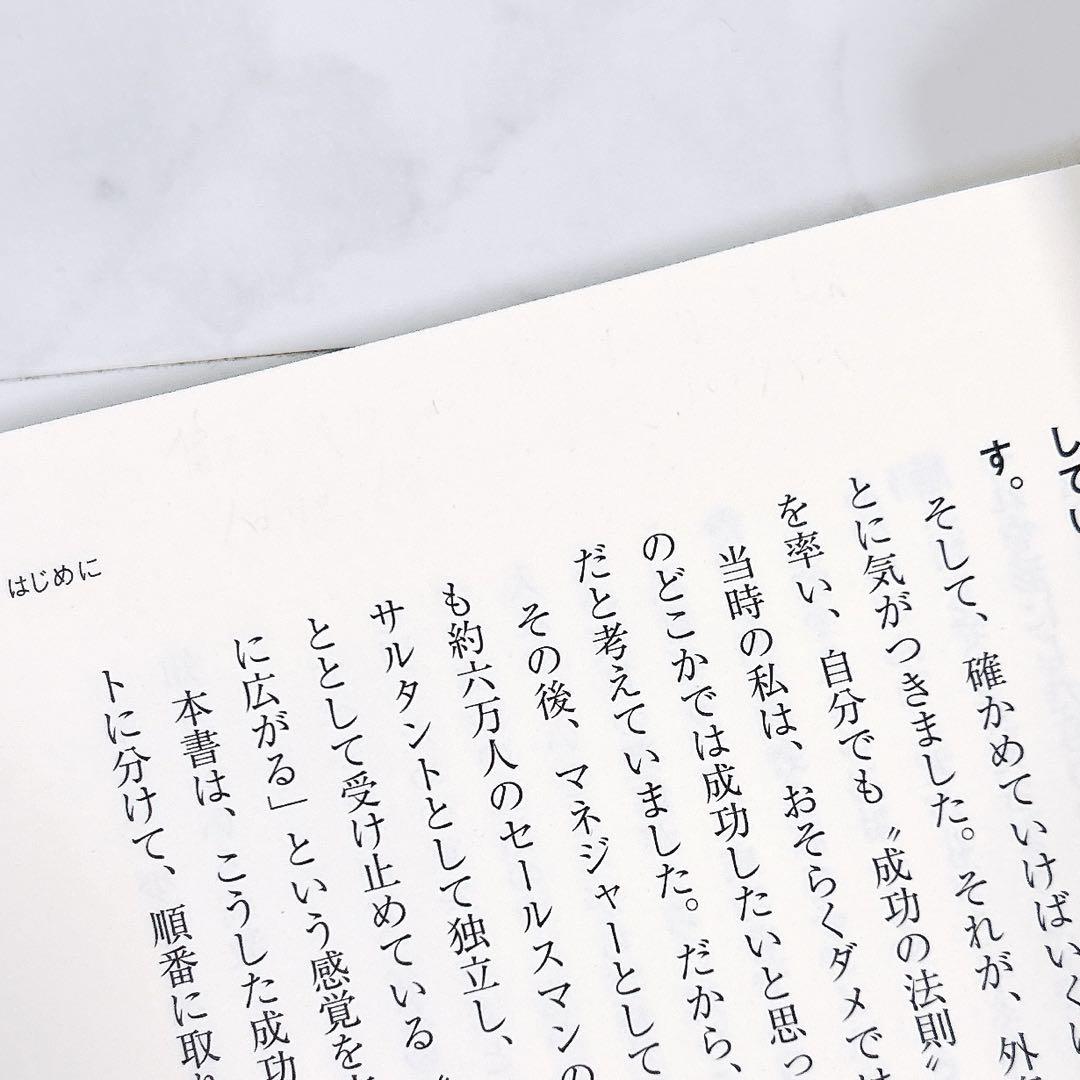 してい
す。
そして、確かめていけばいく
とに気がつきました。それが、外
を率い、自分でも〝成功の法則〟
当時の私は、おそらくダメで
のどこかでは成功したいと思っ
だと考えていました。だから、
その後、マネジャーとして
も約六万人のセールスマンの
サルタントとして独立し、
ととして受け止めている〝
に広がる」という感覚を
本書は、こうした成功
トに分けて、順番に取
はじめに